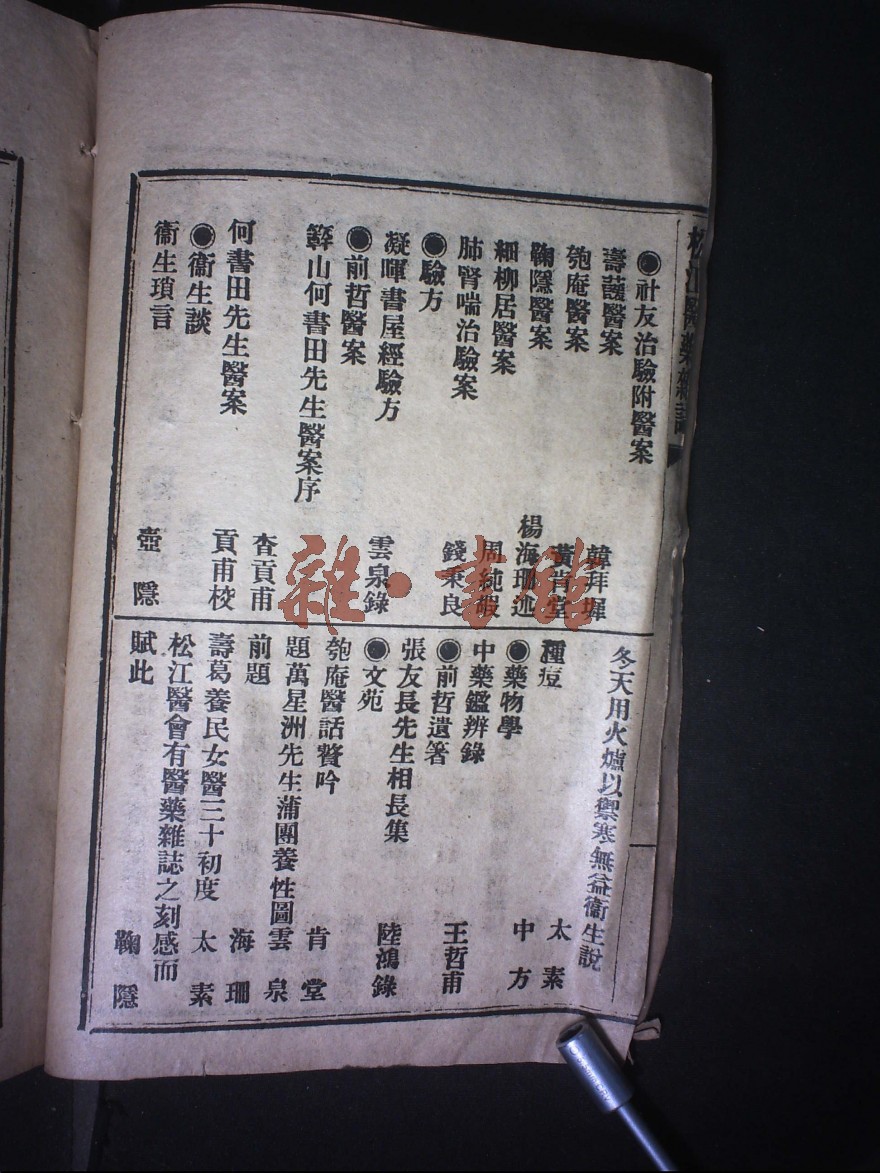 松江醫藥雜誌
●社友治驗附醫案
壽護醫案 韓拜墀
匏庵醫案 黃肯堂
鞠隱醫案 楊海珊述
細柳居醫案 周純嘏
肺腎喘治驗案 錢秉良
●驗方
凝暉書屋經驗方 雲泉錄
●前哲醫案
簳山何書田先生醫案序 查貢甫
何書田先生醫案 貢甫校
●衞生談
衞生瑣言 壺隱
冬天用火爐以禦寒無益衞生說
太素
種痘 中方
●藥物學
中藥鑑辨錄 王哲甫
●前哲遺箸
張友長先生相長集 陸鴻錄
●文苑
匏庵醫話贅吟 肯堂
題萬星洲先生蒲團養性圖 雲泉
前題 海珊
壽葛養民女醫三十初度 太素
松江醫會有醫藥雜誌之刻感而
賦此 鞠隱
雜·書館